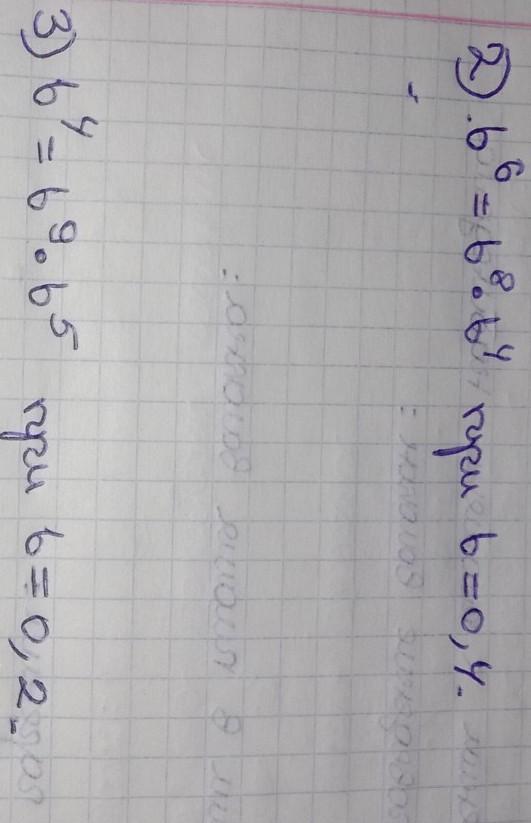 2) b⁶ = b⁸ · b⁴ при b = 0,4.
3) b⁴ = b⁹ · b⁵ при b = 0,2